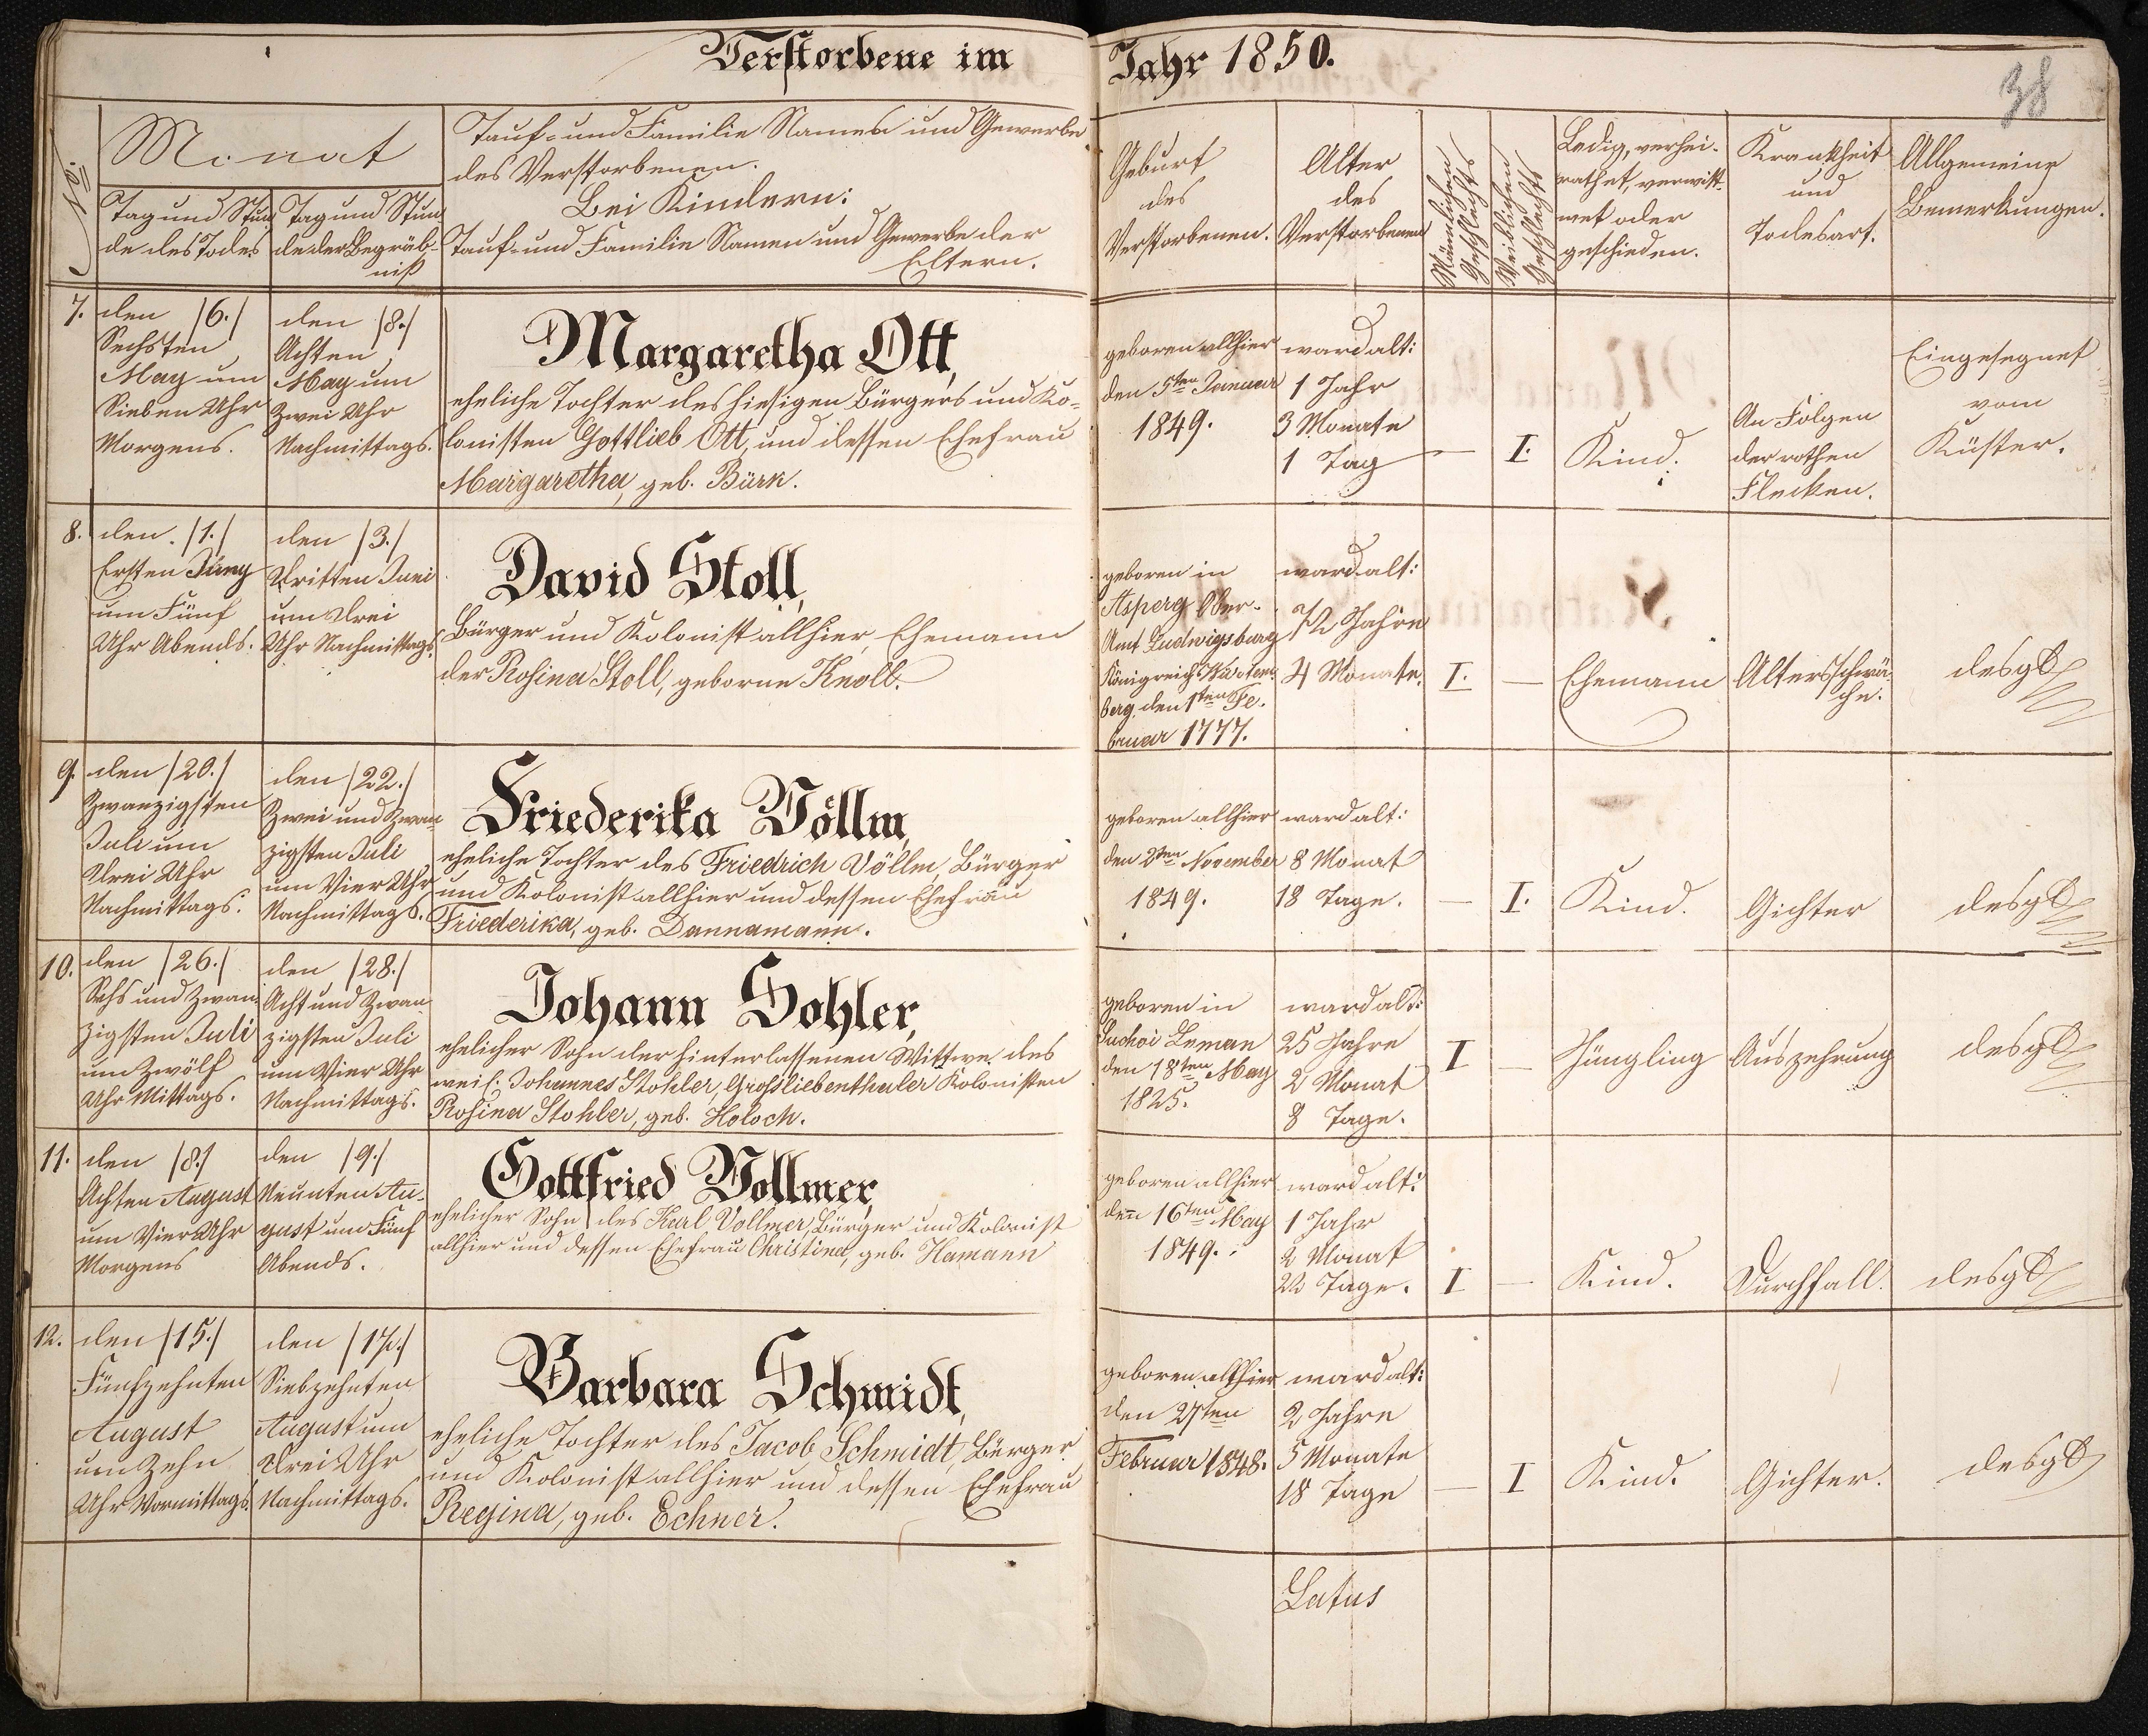 Verstorbene im Jahr 1850.
38
No.
Monat
Tag und Stun
de des Todes
Tag und Stun
de der Begräb-
niß
Tauf- und Familie Namen und Gewerbe
des Verstorbenen.
Bei Kindern:
Tauf- und Familie Namen und Gewerbe der
Eltern.
Geburt
des
Verstorbenen.
Alter
des
Verstorbenen
Männlichen
Geschlechts
Weiblichen
Geschlechts
Ledig, verhei-
rathet, verwitt-
wet oder
geschieden.
Krankheit
und
Todesart.
Allgemeine
Bemerkungen.
7.
den /6./
Sechsten
May um
Sieben Uhr
Morgens.
den /8./
Achten
May um
Zwei Uhr
Nachmittags.
Margaretha Ott,
eheliche Tochter des hiesigen Bürgers und Ko-
lonisten Gottlieb Ott, und dessen Ehefrau
Margaretha, geb. Bürk.
geboren allhier
den 5ten Januar
1849.
ward alt:
1 Jahr
3 Monate
1 Tag
—
I.
Kind.
An Folgen
der rothen
Flecken.
Eingesegnet
vom
Küster.
8.
den /1./
Ersten Juny
um Fünf
Uhr Abends.
den /3./
Dritten Juni
um Drei
Uhr Nachmittags.
David Stoll,
Bürger und Kolonist allhier, Ehemann
der Rosina Stoll, geborne Knoll.
geboren in
Asperg Ober-
Amt Ludwigsburg
Königreich Würtem-
berg, den 1ten Fe-
bruar 1777.
ward alt:
72 Jahre
4 Monate.
I.
—
Ehemann
Altersschwä-
che.
desgl
9.
den /20./
Zwanzigsten
Juli um
Drei Uhr
Nachmittags.
den /22./
Zwei und Zwan-
zigsten Juli
um Vier Uhr
Nachmittags.
Friederika Völlm,
eheliche Tochter des Friedrich Völlm, Bürger
und Kolonist allhier und dessen Ehefrau
Friederika, geb. Dannamann.
geboren allhier
den 2ten November
1849.
ward alt:
8 Monat
18 Tage.
—
I.
Kind.
Gichter
desgl
10.
den /26./
Sechs und Zwan-
zigsten Juli
um Zwölf
Uhr Mittags.
den /28./
Acht und Zwan-
zigsten Juli
um Vier Uhr
Nachmittags.
Johann Sohler,
ehelicher Sohn der hinterlassenen Wittwe des
weil. Johannes Stohler, Großliebenthaler Kolonisten
Rosina Stohler, geb. Holoch.
geboren in
Suchoi Leman
den 18ten May
1825.
ward alt:
25 Jahre
2 Monat
8 Tage.
I
—
Jüngling
Auszehrung
desgl
11.
den /8./
Achten August
um Vier Uhr
Morgens
den /9./
Neunten Au-
gust um Fünf
Abends.
Gottfried Vollmer,
ehelicher Sohn des Karl Vollmer, Bürger und Kolonist
allhier und dessen Ehefrau Christina, geb. Hamann
geboren allhier
den 16ten May
1849.
ward alt:
1 Jahr
2 Monat
22 Tage.
I
—
Kind.
Durchfall.
desgl
12.
den /15./
Fünfzehnten
August
um Zehn
Uhr Vormittags.
den /17./
Siebzehnten
August um
Drei Uhr
Nachmittags.
Barbara Schmidt,
eheliche Tochter des Jacob Schmidt, Bürger
und Kolonist allhier und dessen Ehefrau
Regina, geb. Echner.
geboren allhier
den 27ten
Februar 1848.
ward alt:
2 Jahre
5 Monate
18 Tage
—
I
Kind.
Gichter.
desgl
Latus